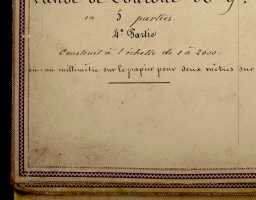 en 5 parties
4e Partie
Construit à l'échelle de 1 à 2000
un millimètre sur le papier pour deux mètres sur